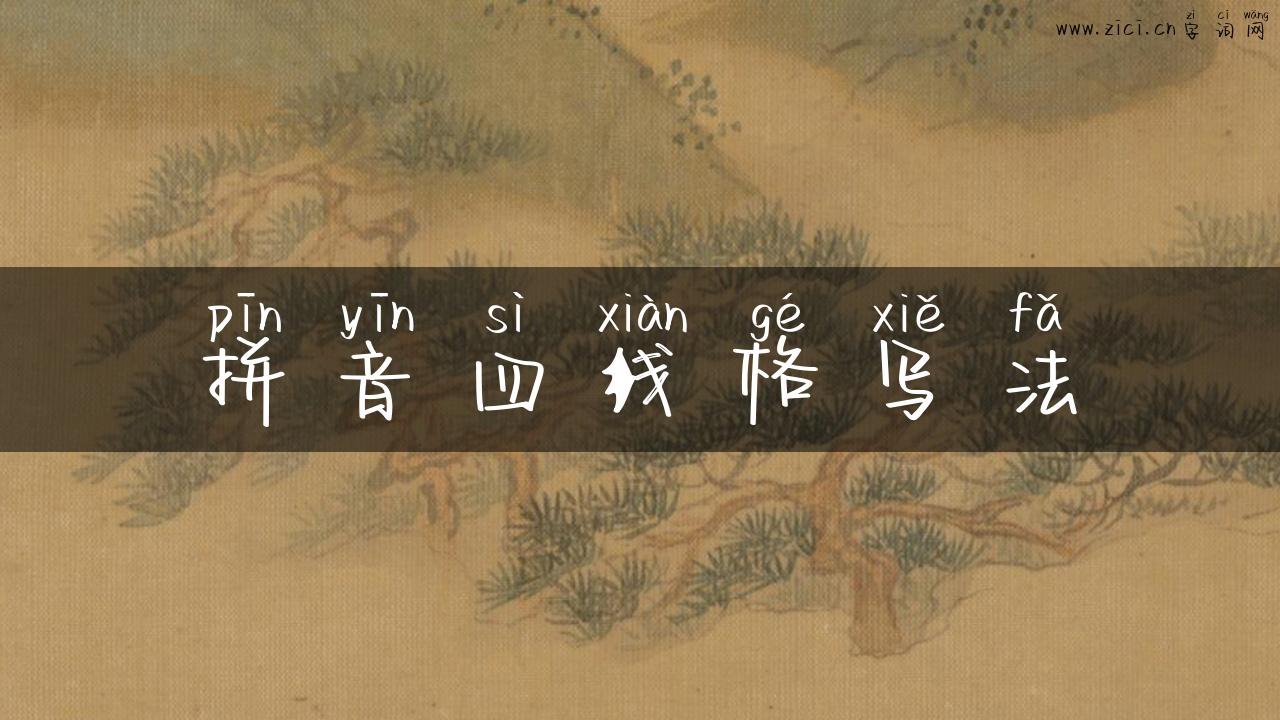 zì cí wǎng
www.zici.cn 字词网
pīn yīn sì xiàn gé xiě fǎ
拼音四线格写法